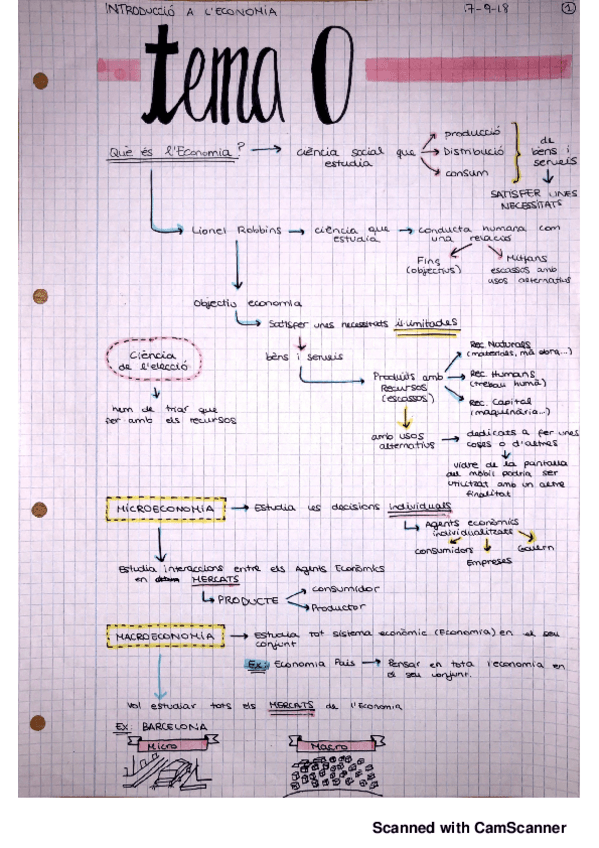 INTRODUCCIÓ A L'ECONOMIA
17-9-18
1
tema 0
Què és l'Economia?
ciència social que
estudia
producció
distribució
consum
de
béns i
serveis
SATISFER UNES
NECESSITATS
Lionel Robbins
ciència que
estudia
conducta humana com
una relació
Fins
(objectius)
Mitjans
escassos amb
usos alternatius
Objectiu economia
Satisfer unes necessitats il·limitades
Ciència
de l'elecció
béns i serveis
Produïts amb
Recursos
(escassos)
Rec. Naturals
(materials, mà obra...)
Rec. Humans
(treball humà)
Rec. Capital
(maquinària...)
hem de triar què
fer amb els recursos
amb usos
alternatius
dedicats a fer unes
coses o d'altres
vidre de la pantalla
del mòbil podria ser
utilitzat amb un altre
finalitat
MICROECONOMIA
Estudia les decisions individuals
Agents econòmics
individualitzats
consumidors
Empreses
Govern
Estudia interaccions entre els Agents Econòmics
en MERCATS
PRODUCTE
consumidor
Productor
MACROECONOMIA
Estudia tot sistema econòmic (Economia) en el seu
conjunt
Ex: Economia País
Pensar en tota l'economia en
el seu conjunt.
Vol estudiar tots els MERCATS de l'Economia
Ex: BARCELONA
Micro
Macro
Scanned with CamScanner